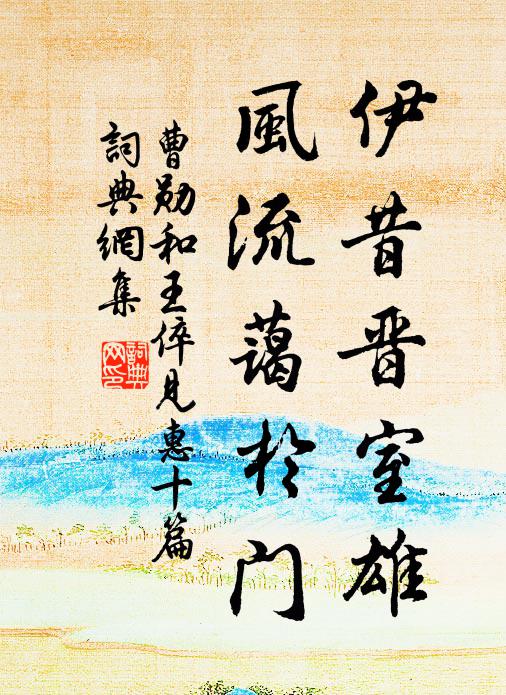 伊昔晋室雄
風流藹於门
曹勛和王倅見惠十篇
詞典網集
詞典网印